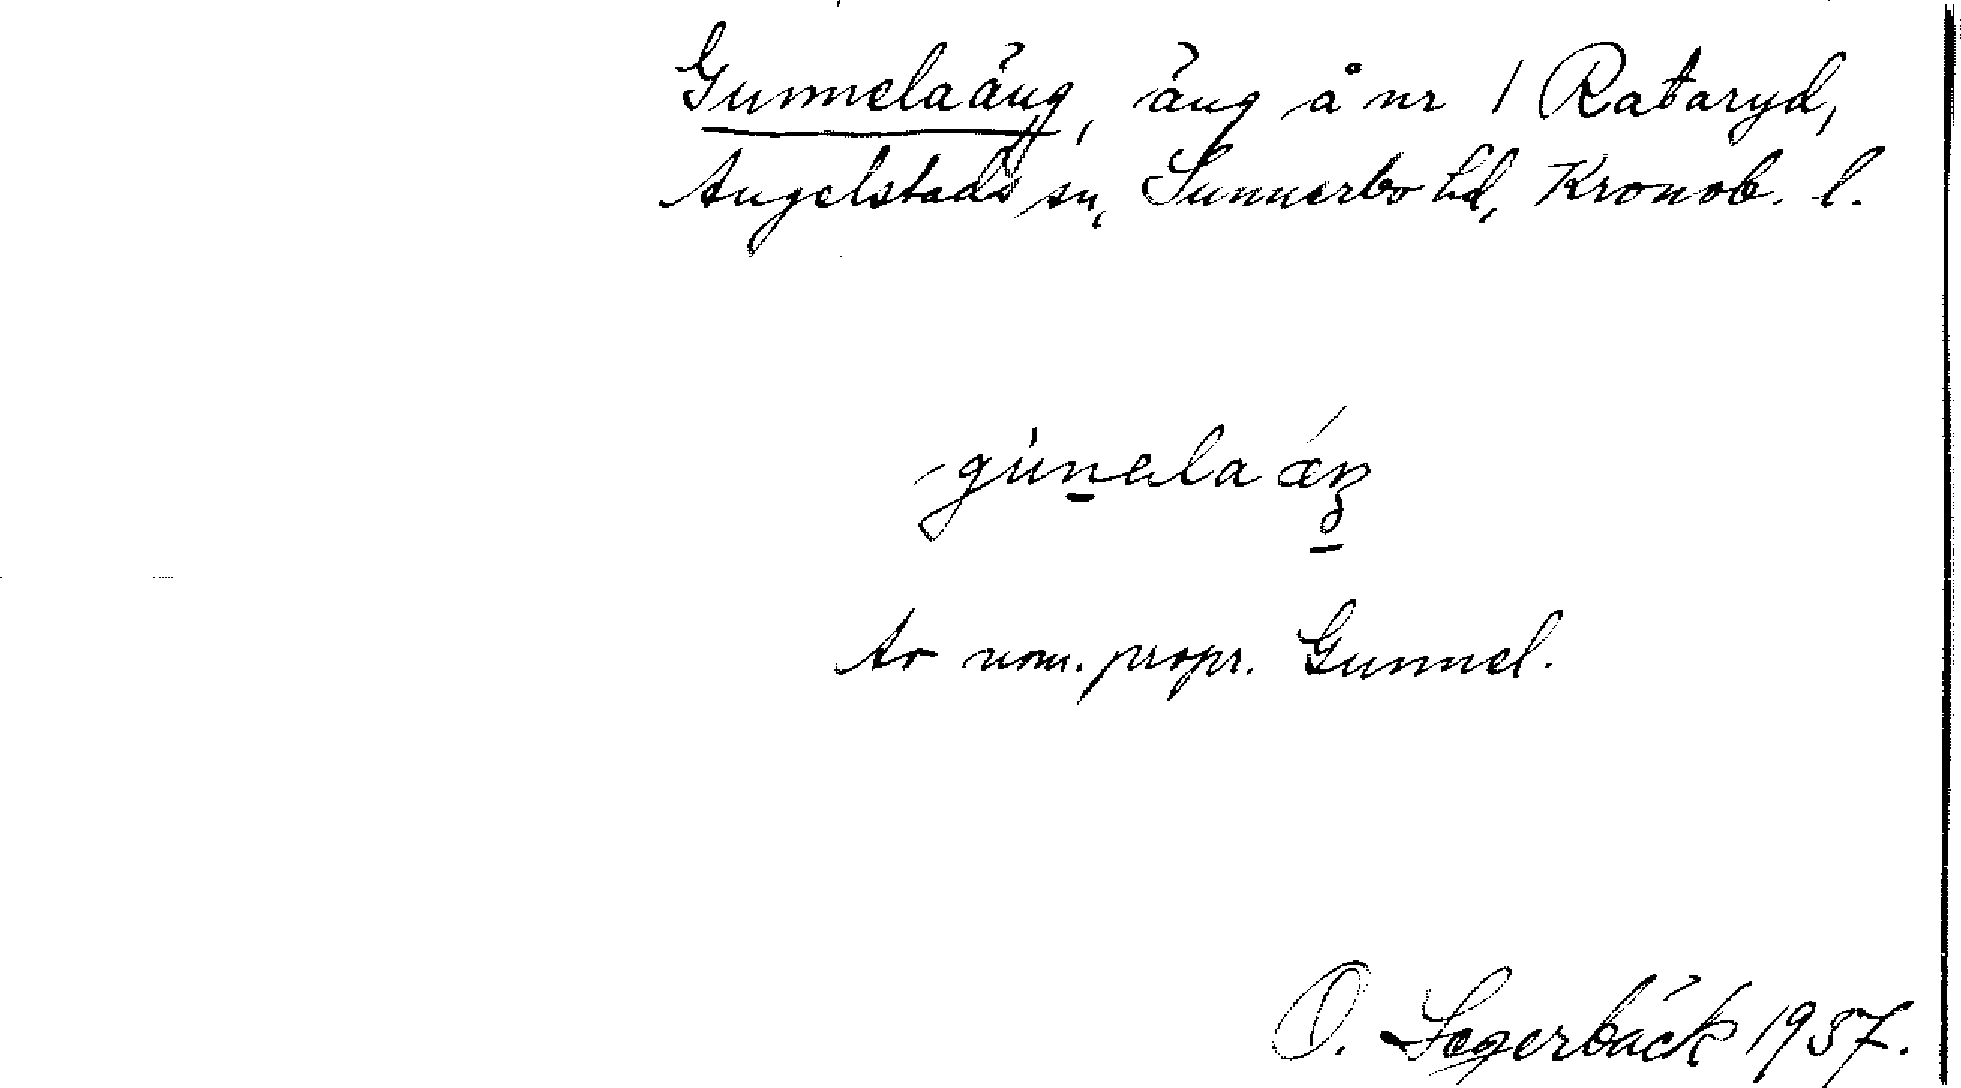 Gunnelaäng, äng å nr 1 Rataryd,
Angelstads sn, Sunnerbo hd, Kronob. l.
Av nom. propr. Gunnel.
O. Segerbäck 1937.